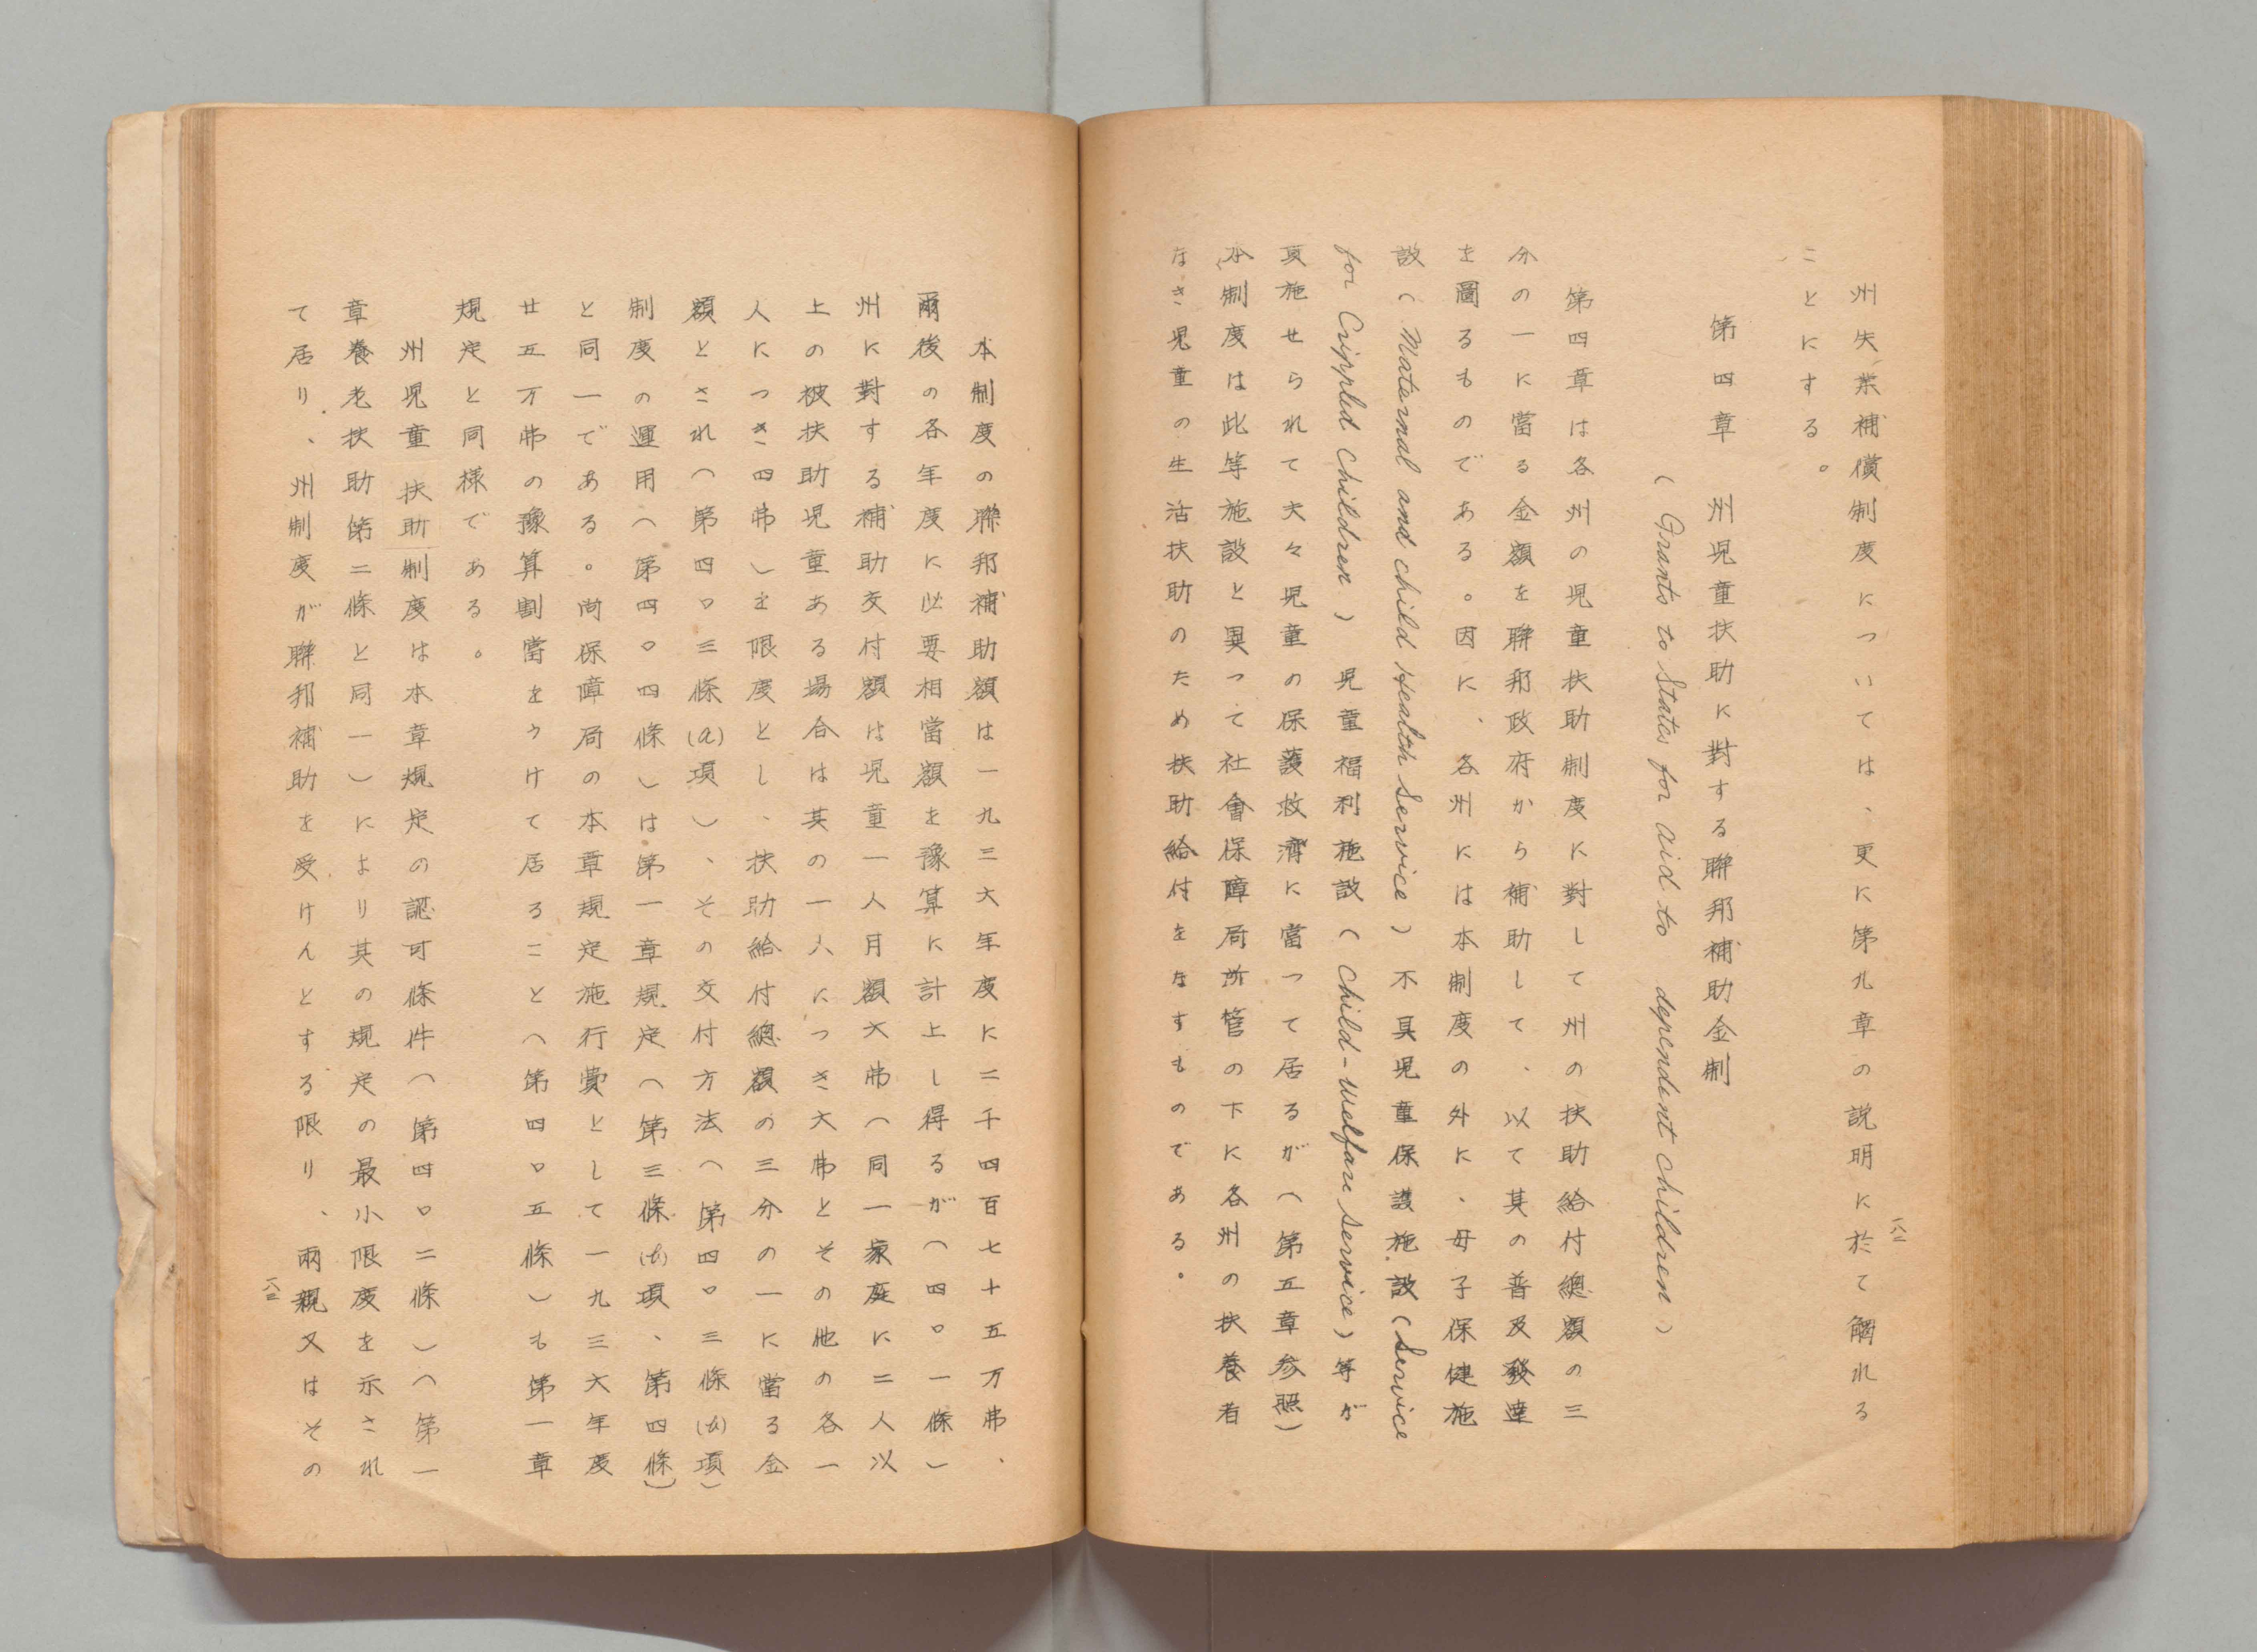 州失業補償制度については、更に第九章の説明に於て觸れる
ことにする。
第四章　州児童扶助に對する聯邦補助金制
(Grants to States for aid to dependent children)
第四章は各州の児童扶助制度に對して州の扶助給付總額の三
分の一に當る金額を聯邦政府から補助して、以て其の普及發達
を圖るものである。因に、各州には本制度の外に、母子保健施
設(Maternal and child Health Service)不具児童保護施設(Service
for Crippled children)児童福利施設(child-welfare service)等が
実施せられて夫々児童の保護救濟に當つて居るが(第五章参照)
本制度は此等施設と異つて社會保障局所管の下に各州の扶養者
なき児童の生活扶助のため扶助給付をなすものである。
一八二
本制度の聯邦補助額は一九三六年度に二千四百七十五万弗、
爾後の各年度に必要相當額を豫算に計上し得るが(四〇一條)
州に對する補助交付額は児童一人月額六弗(同一家庭に二人以
上の被扶助児童ある場合は其の一人につき六弗とその他の各一
人につき四弗)を限度とし、扶助給付總額の三分の一に當る金
額とされ(第四〇三條(a)項)、その交付方法(第四〇三條(b)項)
制度の運用(第四〇四條)は第一章規定(第三條(b)項、第四條)
と同一である。尚保障局の本章規定施行費として一九三六年度
廿五万弗の豫算割當をうけて居ること(第四〇五條)も第一章
規定と同様である。
州児童扶助制度は本章規定の認可條件(第四〇二條)(第一
章養老扶助第二條と同一)により其の規定の最小限度を示され
て居り、州制度が聯邦補助を受けんとする限り、兩親又はその
一八三